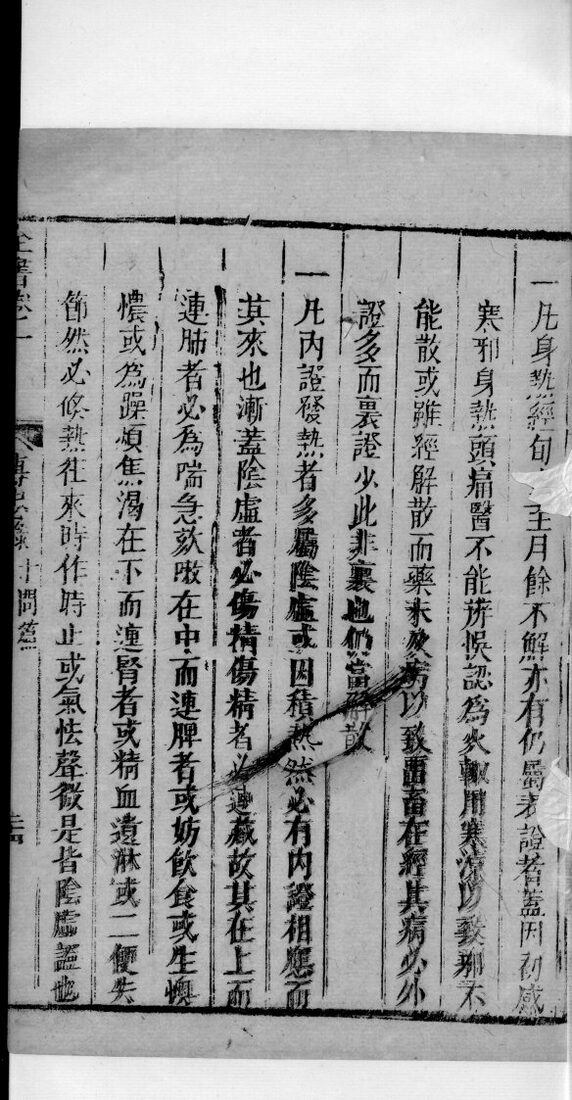 一凡身熱經旬至月餘不解亦有仍屬表證者蓋因初感
寒邪身熱頭痛醫不能辨悞認為火輒用寒涼以致邪不
能散或雖經解散而藥未及病以致畱畜在經其病必外
證多而裏證少此非裏也仍當解散
一凡內證發熱者多屬陰虛或因積熱然必有內證相應而
其來也漸蓋陰虛者必傷精傷精者必連藏故其在上而
連肺者必為喘急欬嗽在中而連脾者或妨飲食或生懊
憹或為躁煩焦渴在下而連腎者或精血遺淋或二便失
節然必倏熱往來時作時止或氣怯聲微是皆陰虛證也
全書卷之一 傳忠錄 十問篇